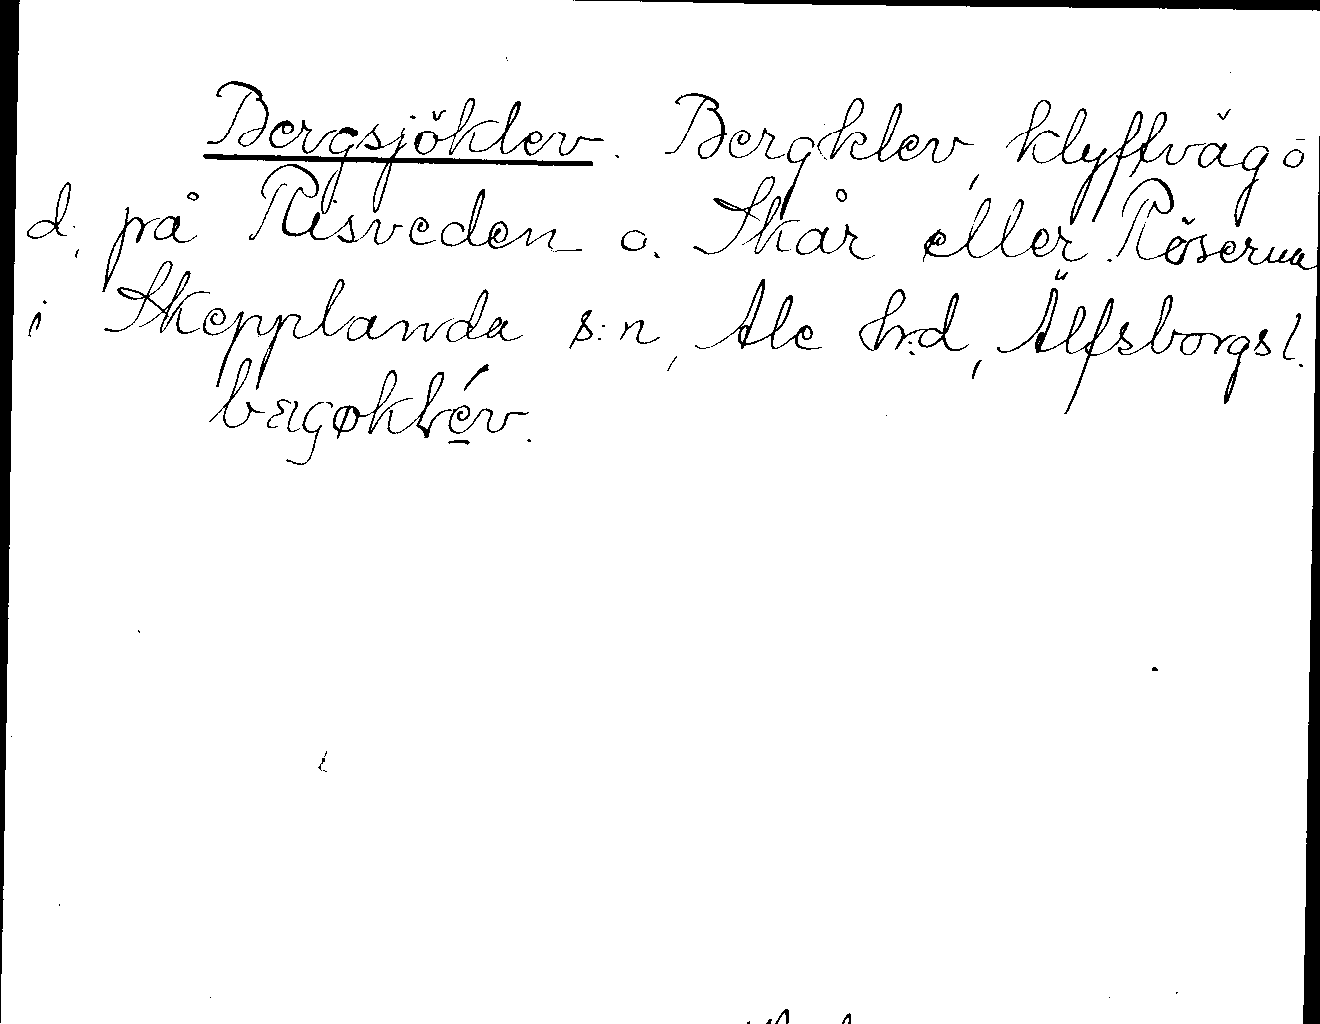 Bergsjöklev. Bergklev, klyftväg ö
d. på Risveden o. Skår eller Röserna
i Skepplanda s:n, Ale hr:d, Älfsborgs l.